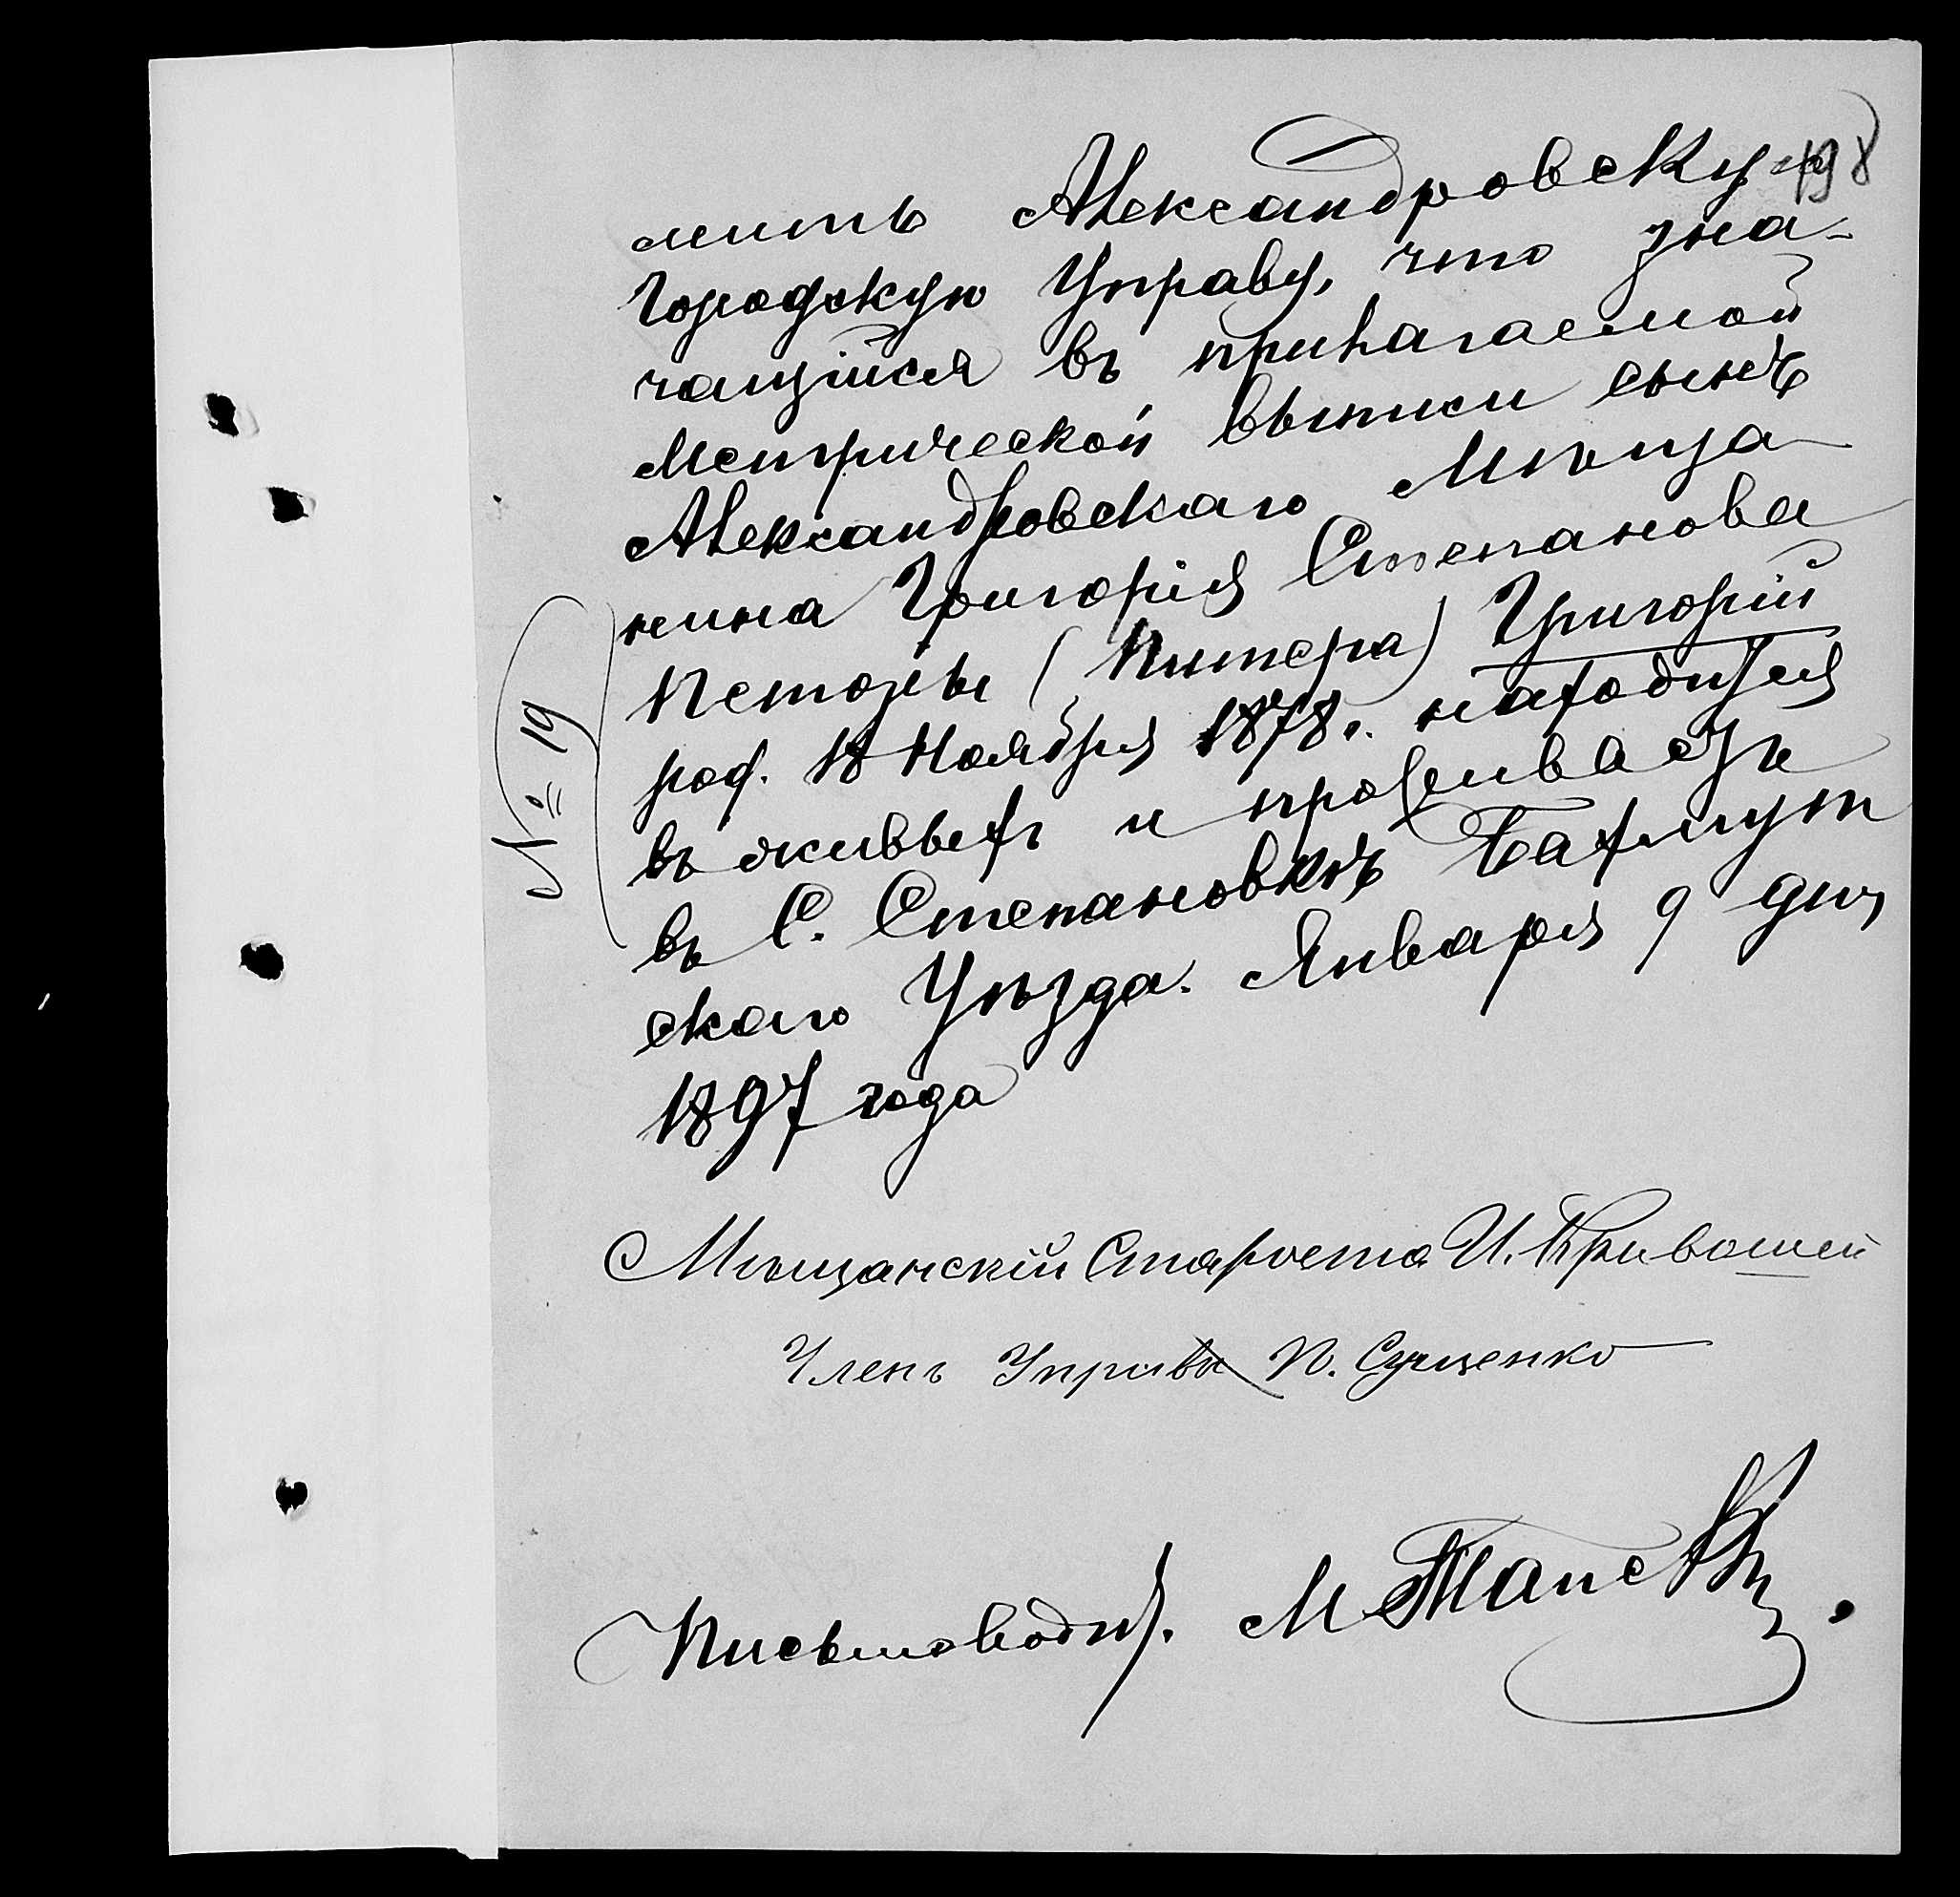 198
мить Александровскую
Городскую Управу, что зна-
чащійся въ прилагаемой
Метрической выписи сынъ
Александровскаго Мѣща
нина Григорія Степанова
Петоры (Питера) Григорій
род. 18 Ноября 1878 г. находится
въ живыхъ и проживаетъ
въ С. Степановкѣ Бахмут
скаго Уѣзда. Января 9 дня
1897 года
№ 19
Мѣщанскій Староста И. Кривошей
Членъ Управы П. Сущенко
Письмоводит. М